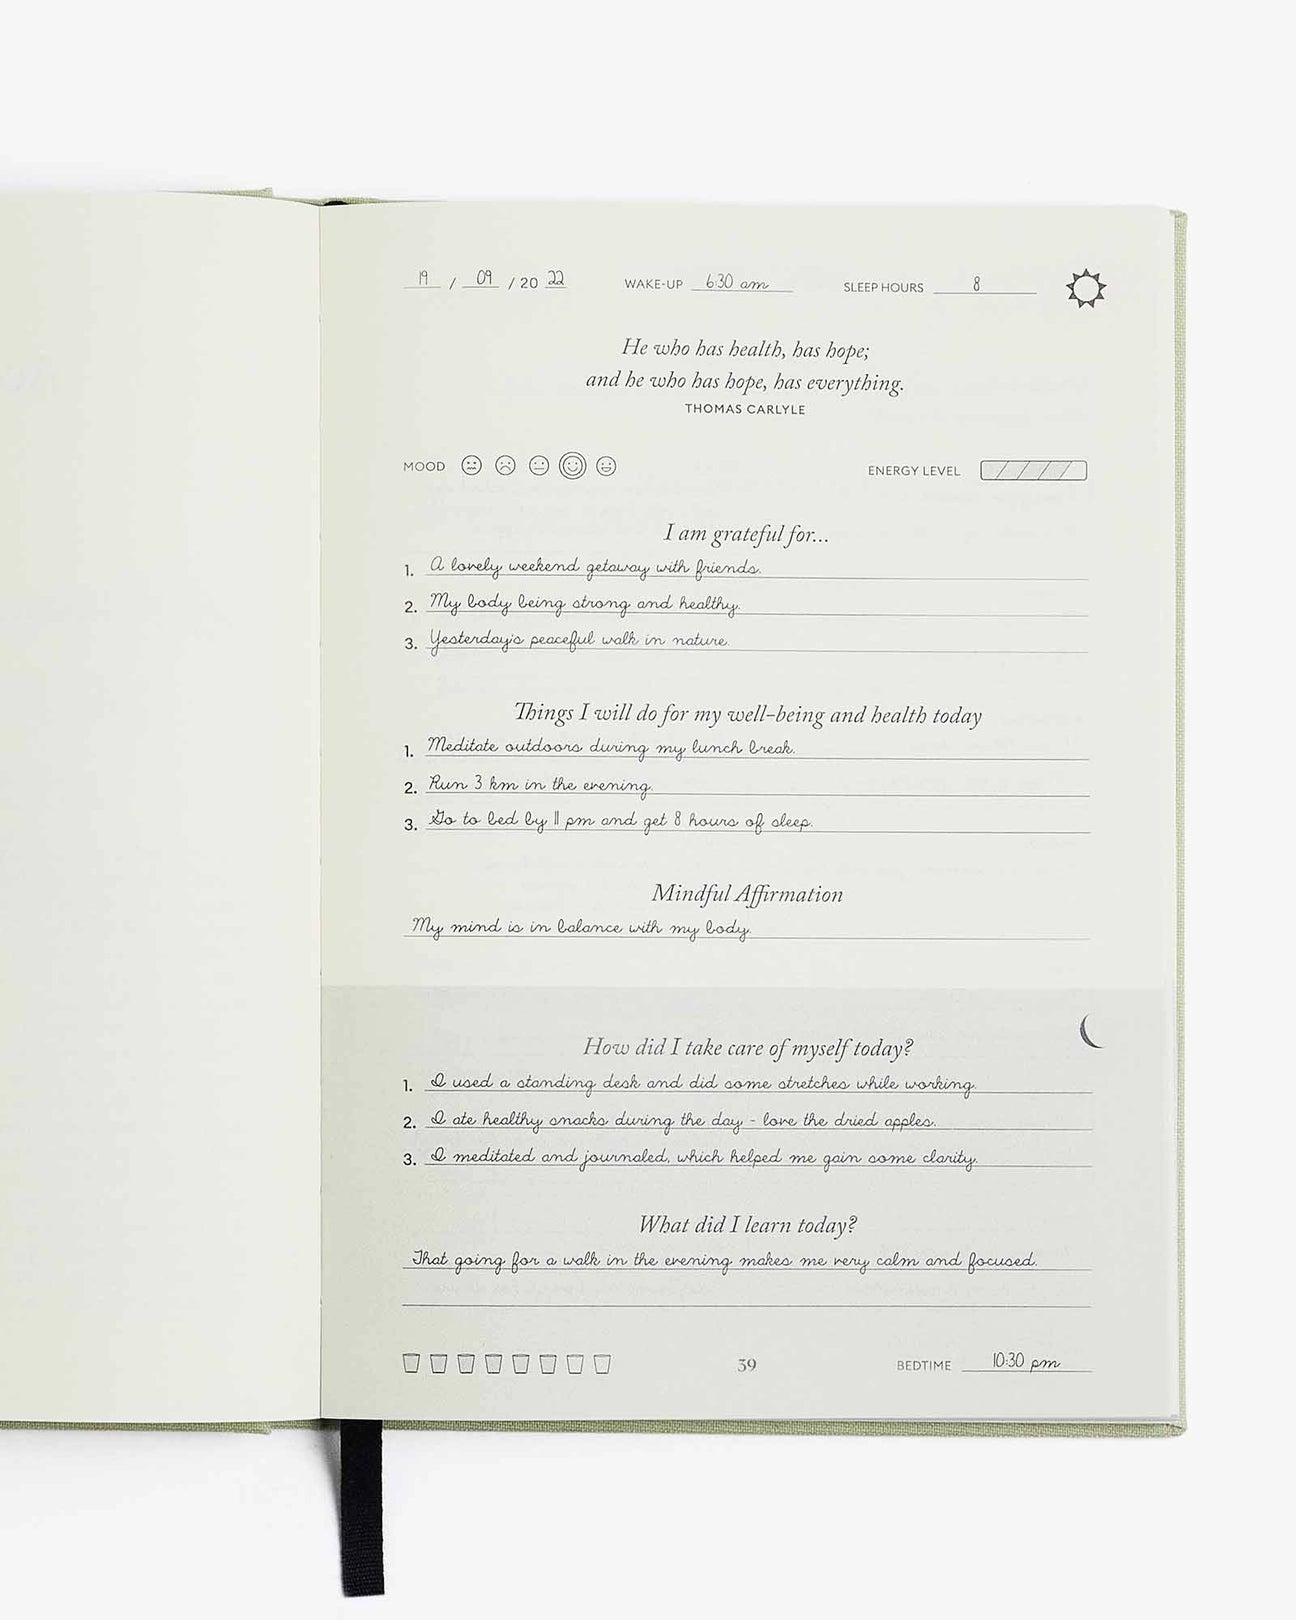 19 / 09 / 20 22 WAKE-UP 6:30 am SLEEP HOURS 8
He who has health, has hope;
and he who has hope, has everything.
THOMAS CARLYLE
MOOD ENERGY LEVEL
I am grateful for...
1. A lovely weekend getaway with friends.
2. My body being strong and healthy.
3. Yesterday's peaceful walk in nature.
Things I will do for my well-being and health today
1. Meditate outdoors during my lunch break.
2. Run 3 km in the evening.
3. Go to bed by 11 pm and get 8 hours of sleep.
Mindful Affirmation
My mind is in balance with my body.
How did I take care of myself today?
1. I used a standing desk and did some stretches while working.
2. I ate healthy snacks during the day - love the dried apples.
3. I meditated and journaled, which helped me gain some clarity.
What did I learn today?
That going for a walk in the evening makes me very calm and focused.
39 BEDTIME 10:30 pm